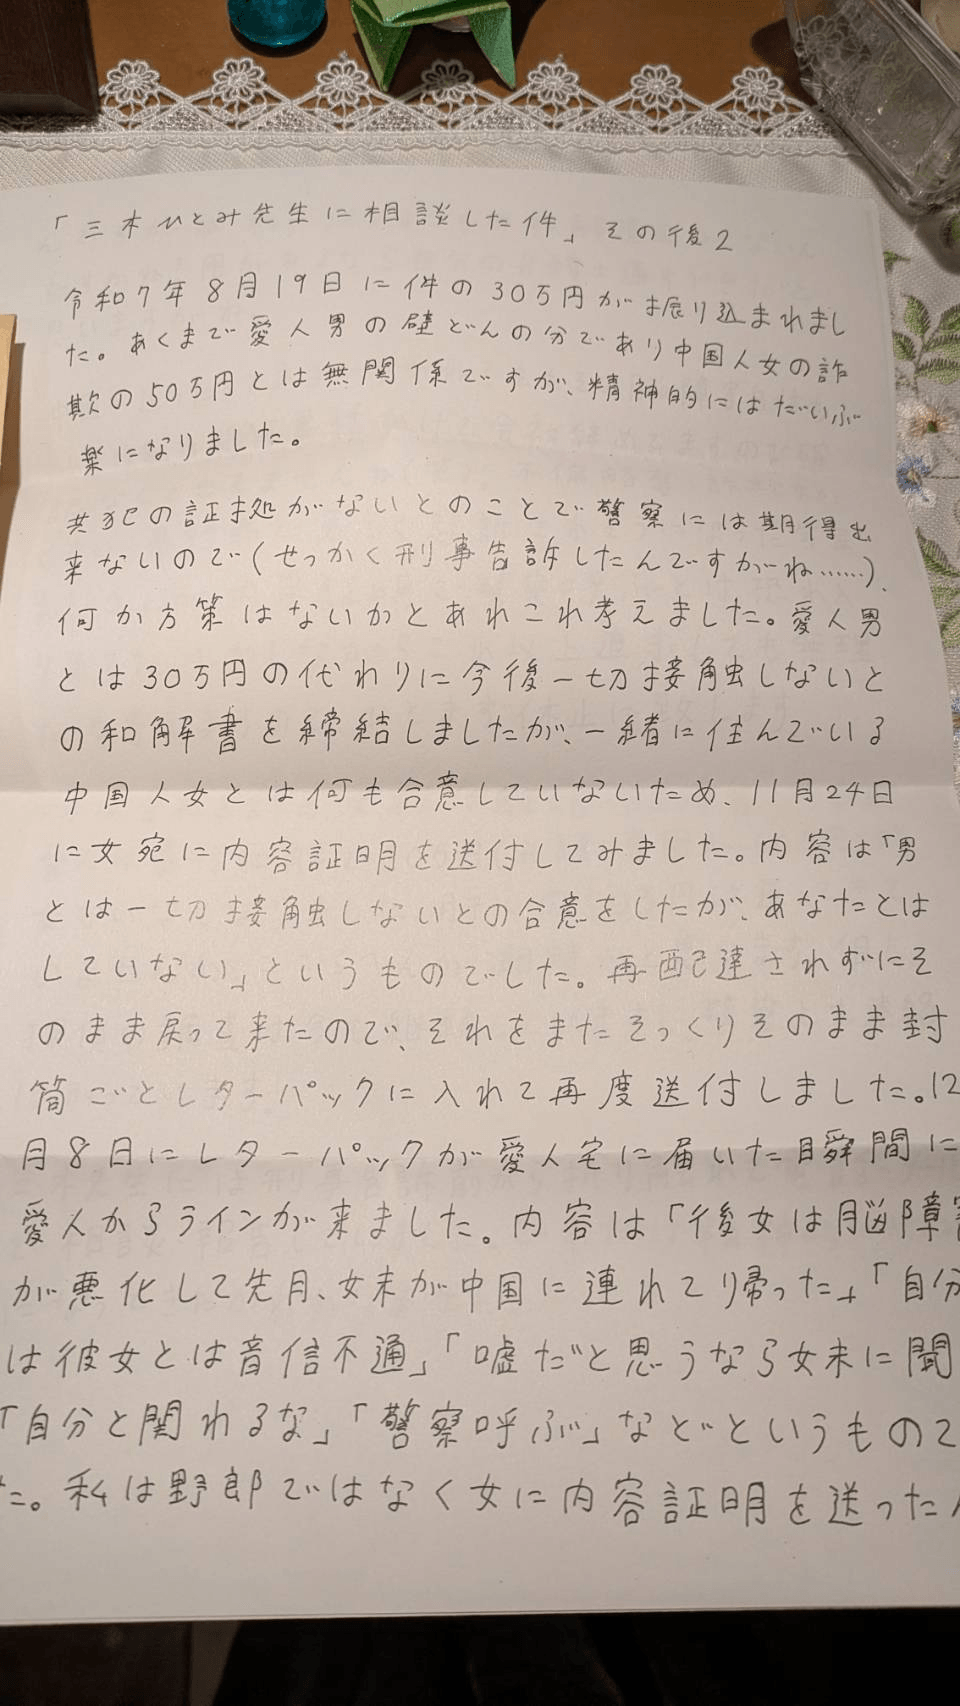 「三木ひとみ先生に相談した件」その後2
令和7年8月19日に件の30万円が振り込まれまし
た。あくまで愛人男の壁どんの分であり中国人女の詐
欺の50万円とは無関係ですが、精神的にはだいぶ
楽になりました。
共犯の証拠がないとのことで警察には期待出
来ないので(せっかく刑事告訴したんですがね……)、
何か方策はないかとあれこれ考えました。愛人男
とは30万円の代わりに今後一切接触しないと
の和解書を締結しましたが、一緒に住んでいる
中国人女とは何も合意していないため、11月24日
に女宛に内容証明を送付してみました。内容は「男
とは一切接触しないとの合意をしたが、あなたとは
していない」というものでした。再配達されずにそ
のまま戻って来たので、それをまたそっくりそのまま封
筒ごとレターパックに入れて再度送付しました。12
月8日にレターパックが愛人宅に届いた瞬間に
愛人からラインが来ました。内容は「後女は脳障害
が悪化して先月、妹が中国に連れて帰った」「自分
は彼女とは音信不通」「嘘だと思うなら妹に聞
「自分と関わるな」「警察呼ぶ」などというもので
た。私は野郎ではなく女に内容証明を送った